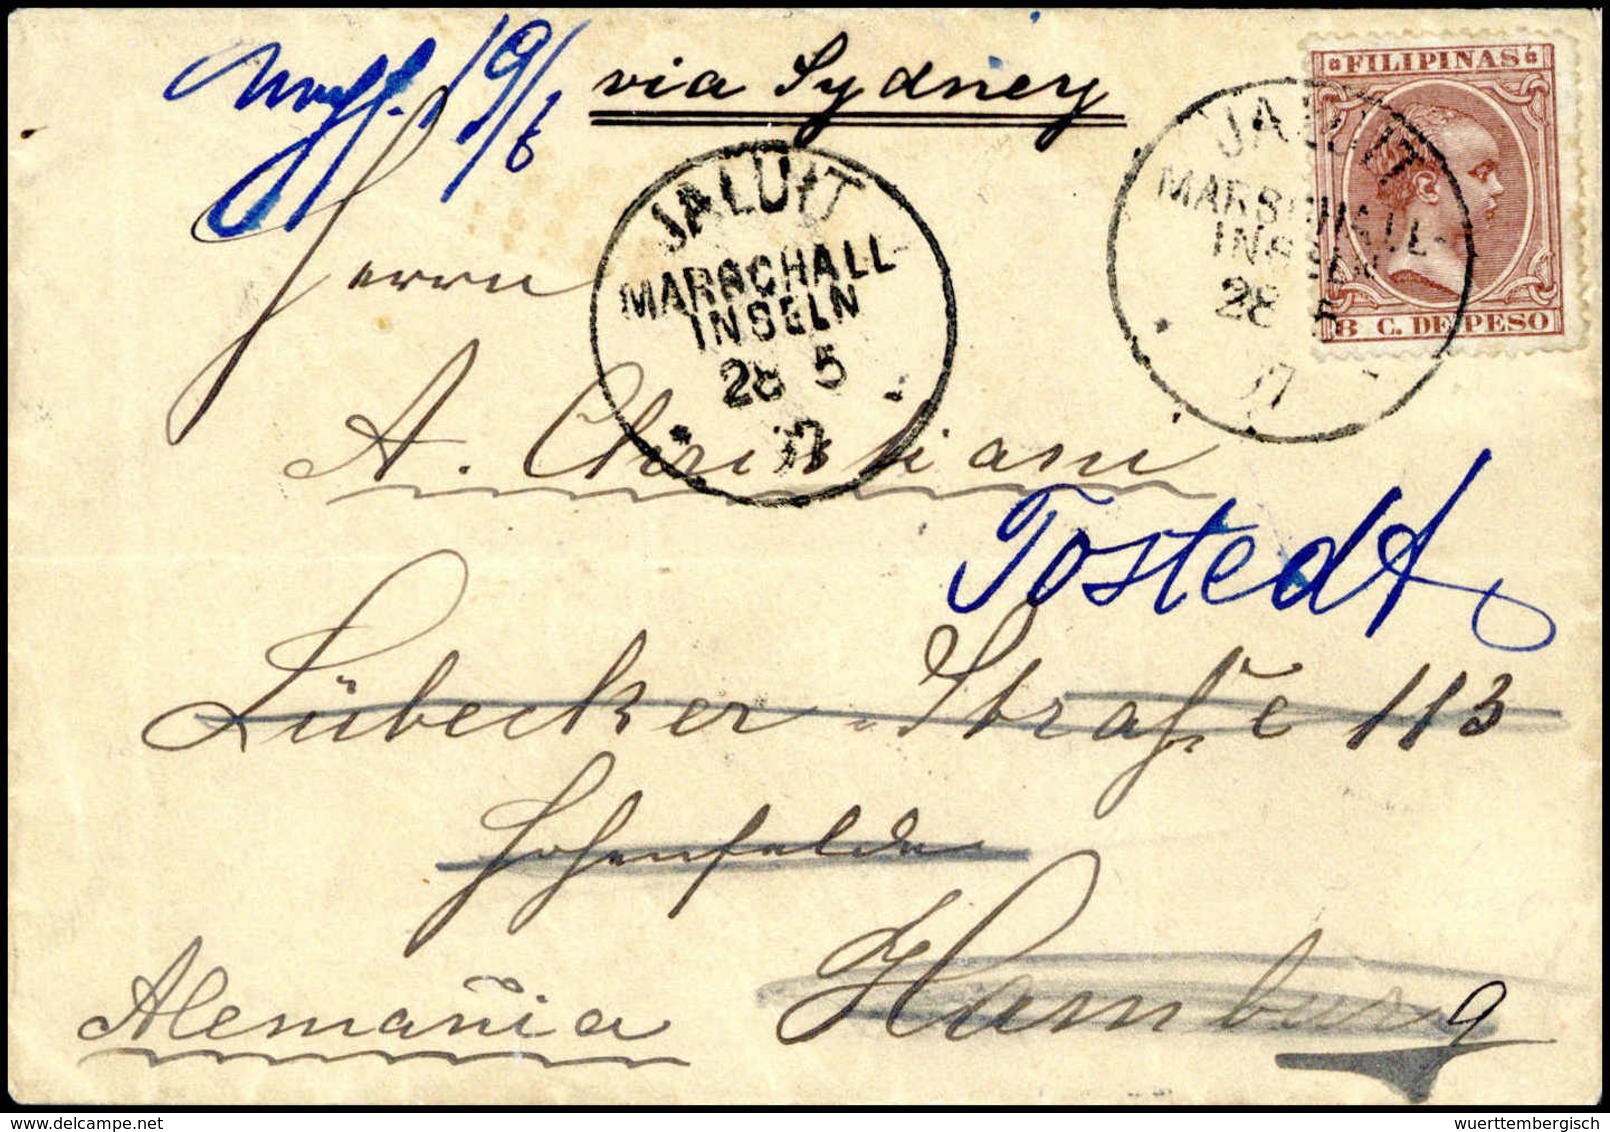 19/6
via Sydney
FILIPINAS
8 C. DE PESO
JALUIT
MARSCHALL-
INSELN
28 5
97
JALUIT
MARSCHALL-
INSELN
28 5
97
Herrn
A. Christiani
Tostedt
Lübecker-Straße 113
Hohenfelde
Hamburg
Alemañia
wuerttembergisch